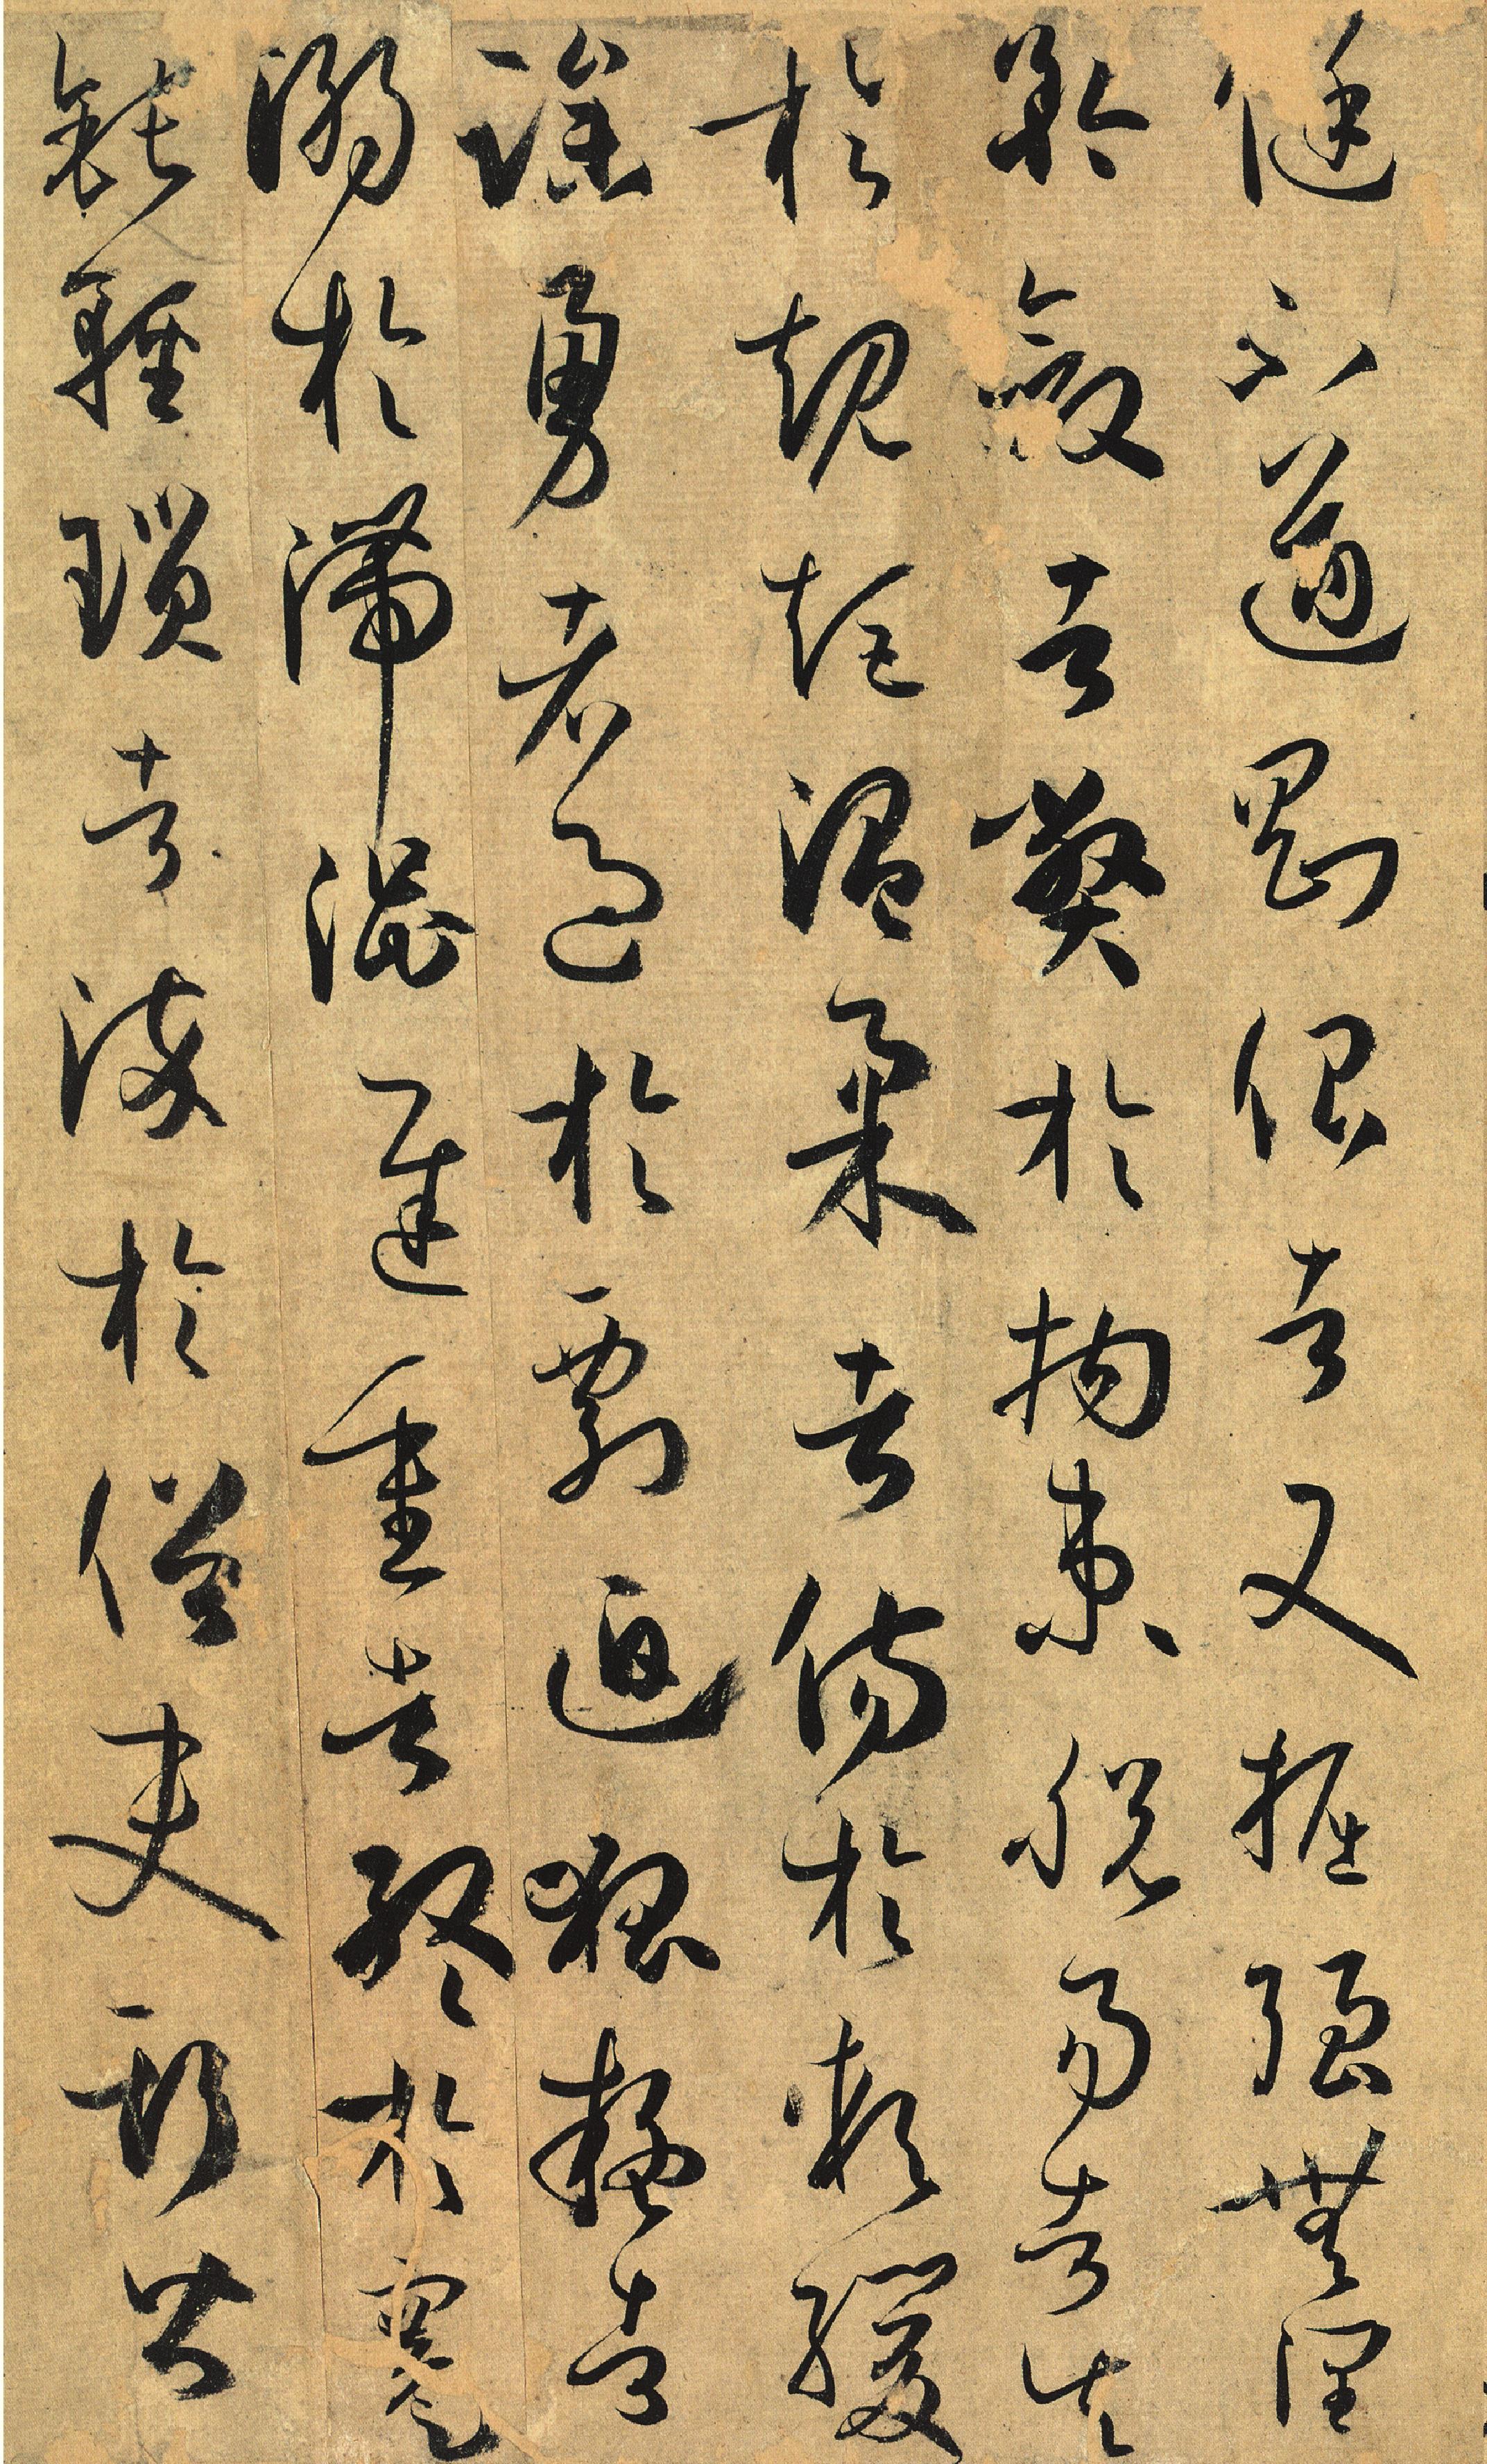 侹不遒剛佷者又掘強無潤
矜斂者弊於拘束脫易者失
於規矩溫柔者傷於軟緩
躁勇者過於剽迫狐疑者
溺於滯澀遲重者終於蹇
鈍輕瑣者染於俗吏斯皆